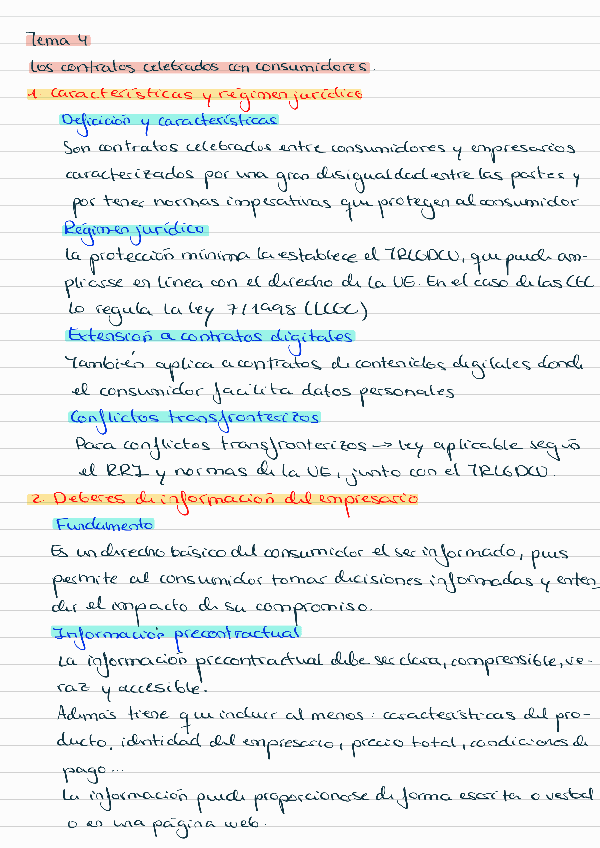 Tema 4
Los contratos celebrados con consumidores.
1. Características y régimen jurídico
Definición y características
Son contratos celebrados entre consumidores y empresarios
caracterizados por una gran desigualdad entre las partes y
por tener normas imperativas que protegen al consumidor
Régimen jurídico
La protección mínima la establece el TRLGDCU, que puede am-
pliarse en línea con el derecho de la UE. En el caso de las CGC
lo regula la ley 7/1998 (LCGC)
Extensión a contratos digitales
También aplica a contratos de contenidos digitales donde
el consumidor facilita datos personales
Conflictos transfronterizos
Para conflictos transfronterizos → ley aplicable según
el RRI y normas de la UE, junto con el TRLGDCU.
2. Deberes de información del empresario
Fundamento
Es un derecho básico del consumidor el ser informado, pues
permite al consumidor tomar decisiones informadas y enten_
der el impacto de su compromiso.
Información precontractual
La información precontractual debe ser clara, comprensible, ve-
raz y accesible.
Además tiene que incluir al menos: características del pro-
ducto, identidad del empresario, precio total, condiciones de
pago...
La información puede proporcionarse de forma escrita o verbal
o en una página web.